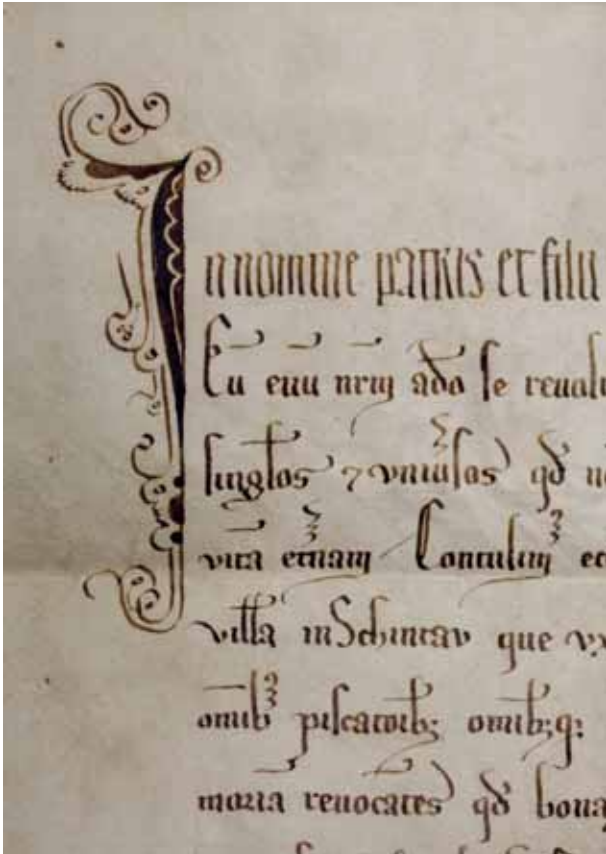 In nomine patris et filii
Cu evu nrm ado se revolu
singlos ⁊ vniusos qd
vita etnam Contulim et
villa in Schintav que vx
omib piscatoib; omib;q:
moria revocates qd bona